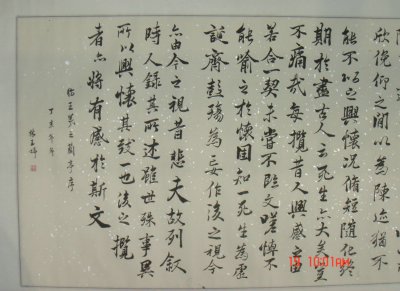 欣俛仰之閒以為陳迹猶不
能不以之興懷況脩短隨化終
期於盡古人云死生亦大矣豈
不痛哉每攬昔人興感之由
若合一契未嘗不臨文嗟悼不
能喻之於懷固知一死生為虛
誕齊彭殤為妄作後之視今
亦由今之視昔悲夫故列敘
時人錄其所述雖世殊事異
所以興懷其致一也後之攬
者亦將有感於斯文
臨王羲之蘭亭序
丁亥年
10:01AM